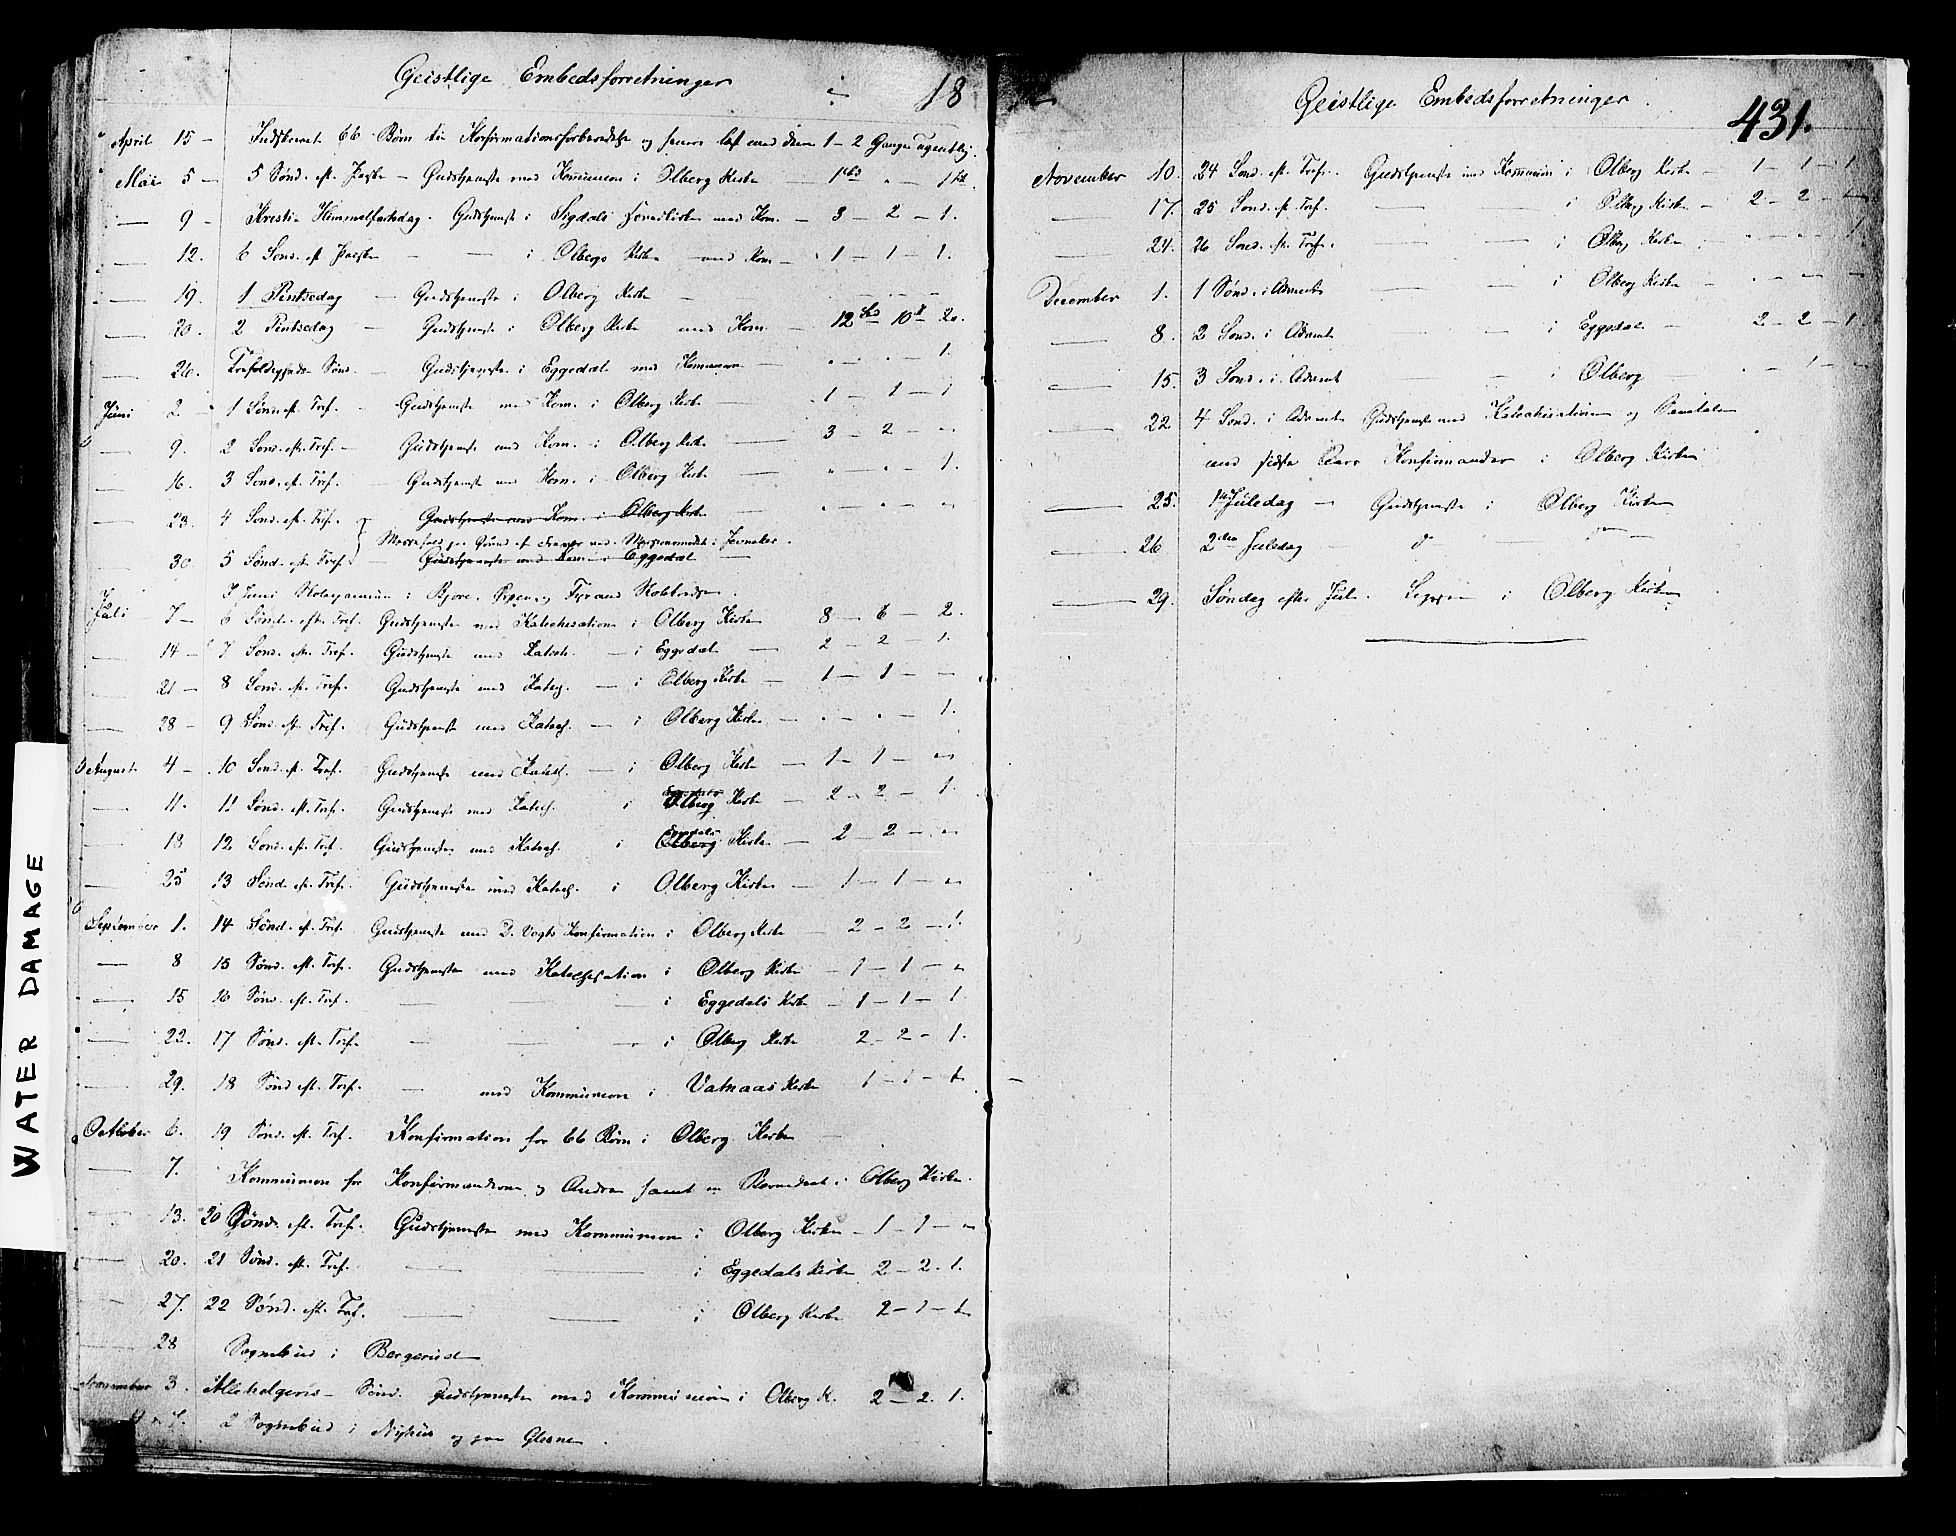 Geistlige Embedsforretninger 18
April 15 - Indskrevet 66 Børn til Konfirmationsforberedelse og senere læst med dem 1 - 2 Gange ugentlig.
Mai 5 - 5 Sønd. eft. Paaske - Gudstjeneste med Kommunion i Olberg Kirke
9 - Kristi Himmelfartsdag. Gudstjeneste i Sigdals Hovedkirke med Kom. - 3 - 2 - 1.
12. 6 Sønd. eft. Paaske - - i Olbergs Kirke med Kom - 1 - 1 - 1.
19. 1 Pintsedag - Gudstjeneste i Olberg Kirke -
20. 2 Pintsedag - Gudstjeneste i Olberg Kirke med Kom. - 12 10 20.
26. Trefoldigheds Sønd. - Gudstjeneste i Eggedal med Kommunion - " - " - 1.
Juni 2. 1 Sønd. eft. Tref. - Gudstjeneste med Kom. i Olberg Kirke - 1 - 1 - 1
9. 2 Sønd. eft. Tref. - Gudstjeneste med Kom. i Olberg Kirke - 3 - 2 - "
16. 3 Sønd. eft. Tref. - Gudstjeneste med Kom. i Olberg Kirke - " - " - 1.
23. 4 Sønd. eft. Tref. Gudstjeneste med Kom. i Olberg Kirke " - " - "
Messefald paa Grund af
30 5 Sønd. eft. Tref. - Gudstjeneste med Kom. i Eggedal
I Juni Skoleexamen i
Juli 7 - 6 Sønd. eft. Tref. Gudstjeneste med Katechisation i Olberg Kirke 8 - 6 - 2.
14 - 7 Sønd. eft. Tref. Gudstjeneste med Katech. - i Eggedal - 2 - 2 - 1.
21 - 8 Sønd. eft. Tref. Gudstjeneste med Katech. - i Olberg Kirke - 1 - 1 - -
28 - 9 Sønd. eft. Tref. Gudstjeneste med Katech. - i Olberg Kirke - " - " - 1.
August 4 - 10 Sønd. eft. Tref. Gudstjeneste med Katech. - i Olberg Kirke - 1 - 1 - "
11. 11 Sønd. eft. Tref. Gudstjeneste med Katech. i Olberg Kirke - 2 - 2 - 1.
18 12 Sønd. eft. Tref. Gudstjeneste med Katech. i Eggedals Olberg Kirke - 2 - 2 - "
25 13 Sønd. eft. Tref. Gudstjeneste med Katech. i Olberg Kirke - 1 - 1 - "
September 1. 14 Sønd. eft. Tref. Gudstjeneste med Konfirmation i Olberg Kirke - 2 - 2 - 1.
8 15 Sønd. eft. Tref. Gudstjeneste med Katechisation i Olberg Kirke - 1 - 1 - "
15 16 Sønd. eft. Tref. - - - i Eggedals Kirke - 1 - 1 - 1
22. 17 Sønd. eft. Tref. - - - i Olberg Kirke 2 - 2 - 1.
29. 18 Sønd. eft. Tref. - med Kommunion i Vatnaas Kirke 1 - 1 - 1
October 6. 19 Sønd. eft. Tref. Konfirmation for 66 Børn i Olberg Kirke
7. Kommunion for Konfirmanderne og Andre samt en Barnedaab i Olberg Kirke.
13. 20 Sønd. eft. Tref. Gudstjeneste med Kommunion i Olberg Kirke - 1 - 1 - "
20. 21 Sønd. eft. Tref. - - i Eggedals Kirke 2 - 2 - 1.
27. 22 Sønd. eft. Tref. - - i Olberg Kirke 2 - 1 - 1
28 Sognebud i Bergerud
November 3. Allehelgens - Sønd. Gudstjeneste med Kommunion i Olberg K. 2 - 2 1.
2 Sognebud i Nyhus og paa Glesne.
Geistlige Embedsforretninger. 431.
November 10. 24 Sønd. eft. Tref. Gudstjeneste med Kommunion i Olberg Kirke - 1 - 1 - 1
17. 25 Sønd. eft. Tref. - - i Olberg Kirke - 2 - 2 -
24. 26 Sønd. eft. Tref. - - i Olberg Kirke - " - " - 1.
December 1. 1 Sønd. i Advent - - i Olberg Kirke
8. 2 Sønd. i Advent - i Eggedal - 2 - 2 - 1.
15. 3 Sønd. i Advent - i Olberg
22. 4 Sønd. i Advent Gudstjeneste med Katechisation og Samtale
med sidste Aars Konfirmander i Olberg Kirke
25. 1ste Juledag - Gudstjeneste i Olberg Kirke
26 2den Juledag do - do -
29. Søndag efter Jul. i Olberg Kirke
WATER DAMAGE